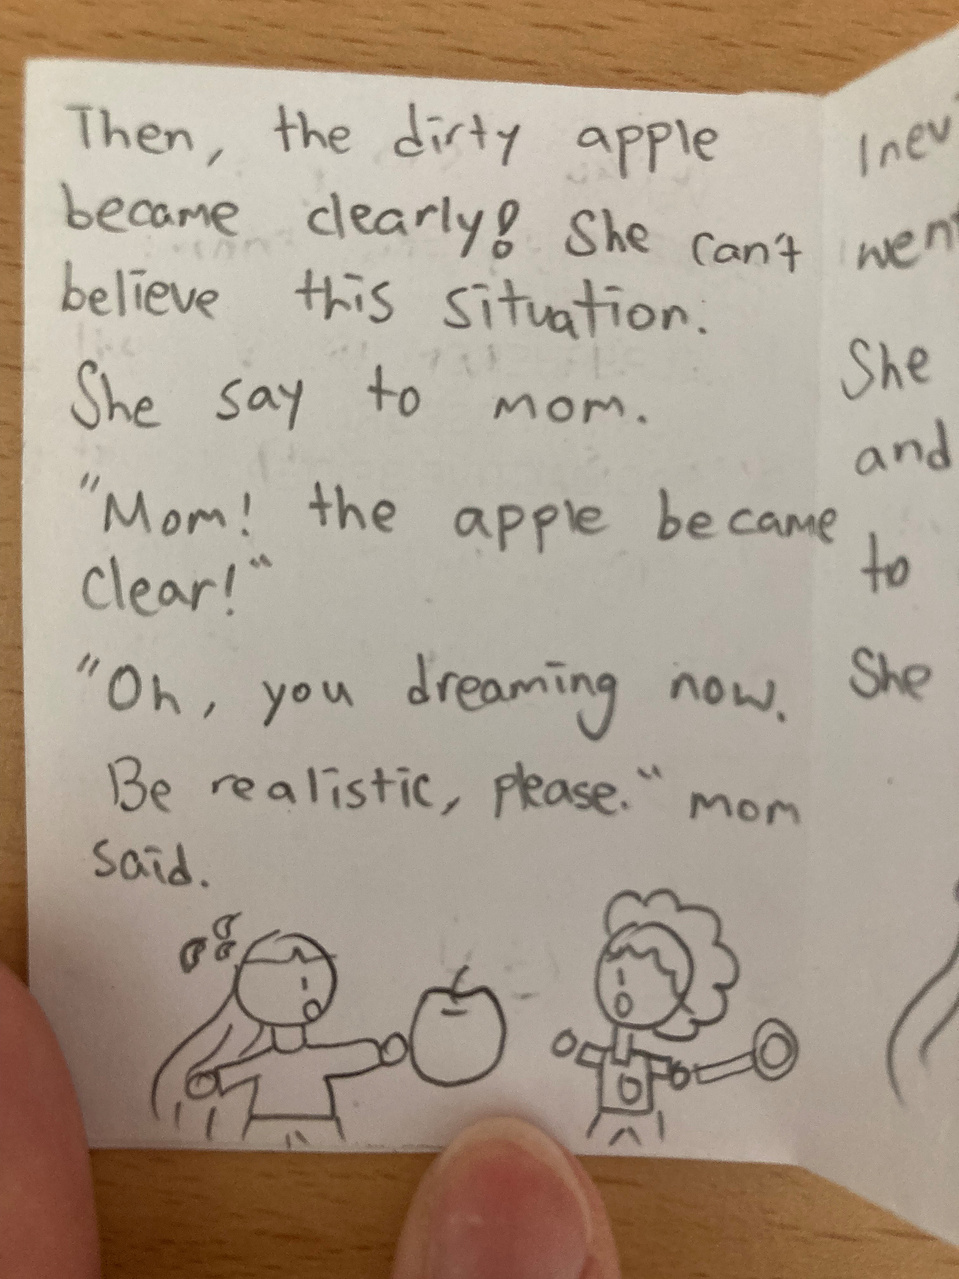 Then, the dirty apple
became clearly! She can't
believe this situation.
She say to mom.
"Mom! the apple became
clear!"
"Oh, you dreaming now.
Be realistic, please." mom
said.
She
and
to
She